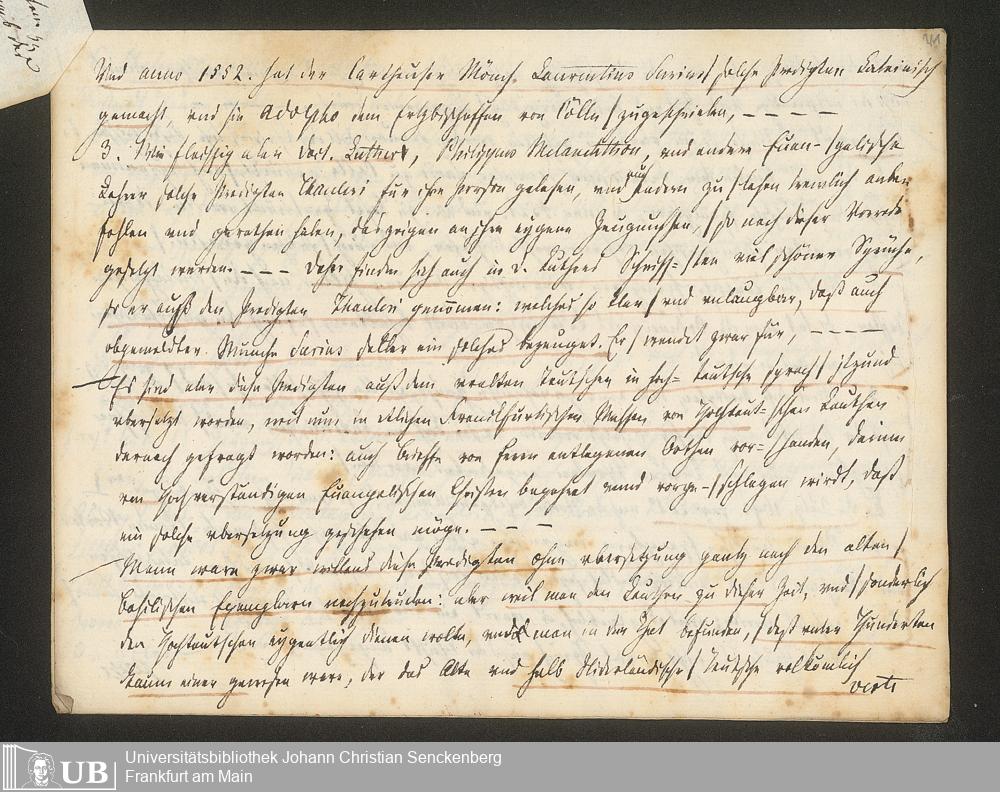 41
Vnd anno 1552. hat der Cartheuser Mönch Laurentius Surius / solche Predigten Lateinisch
gemacht, vnd sie Adolpho dem Ertzbischoffen von Cölln / zugeschrieben, – – – –
3. Wie fleissig aber Doct. Luther, Philippus Melanchthon, vnd andere Euan- / gelische
Lehrer solche Predigten Thauleri für ihre Person gelesen, vnd andern zu / lesen trewlich anbe-
fohlen vnd gerathen haben, das zeigen an ihre eygene Zeugnussen, / so nach dieser Vorrede
gesetzt werden. – – – Daher finden sich auch in D. Luthers Schriff= / ten viel schöner Sprüche,
so er auß den Predigten Thauleri genom̄en: welches so klar / vnd vnlaugbar, daß auch
obgemeldter Münche Surius selber ein solches bezeuget. Er / wendet zwar für, – – – –
Es sind aber diese Predigten auß dem vralten Teutschen in hoch= teutsche sprach / jtzund
vbersetzt worden, weil nun in etlichen Franckfurtischen Messen von Hochteut= / schen Leuthen
darnach gefragt worden: auch Brieffe von fernn entlegenen Orthen vor= / handen, darinn
von hochverstandigen Euangelischen Christen begehret vnnd vorge- / schlagen wirdt, daß
ein solche vbersetzung geschehen möge. – – –
Mann ware zwar willens diese Predigten ohne vbersetzung gantz nach den alten /
Baßlischen Exemplarn nachzutrucken: aber weil man den Leuthen zu dieser Zeit, vnd / sonderlich
den Hochteutschen eygentlich dienen wollen, vnd man in der That befunden, / daß vnter Hunderten
kaum einer gewesen ware, der das Alte vnd halb Niderländische / Teutsche volkömlich
Universitätsbibliothek Johann Christian Senckenberg
Frankfurt am Main
UB